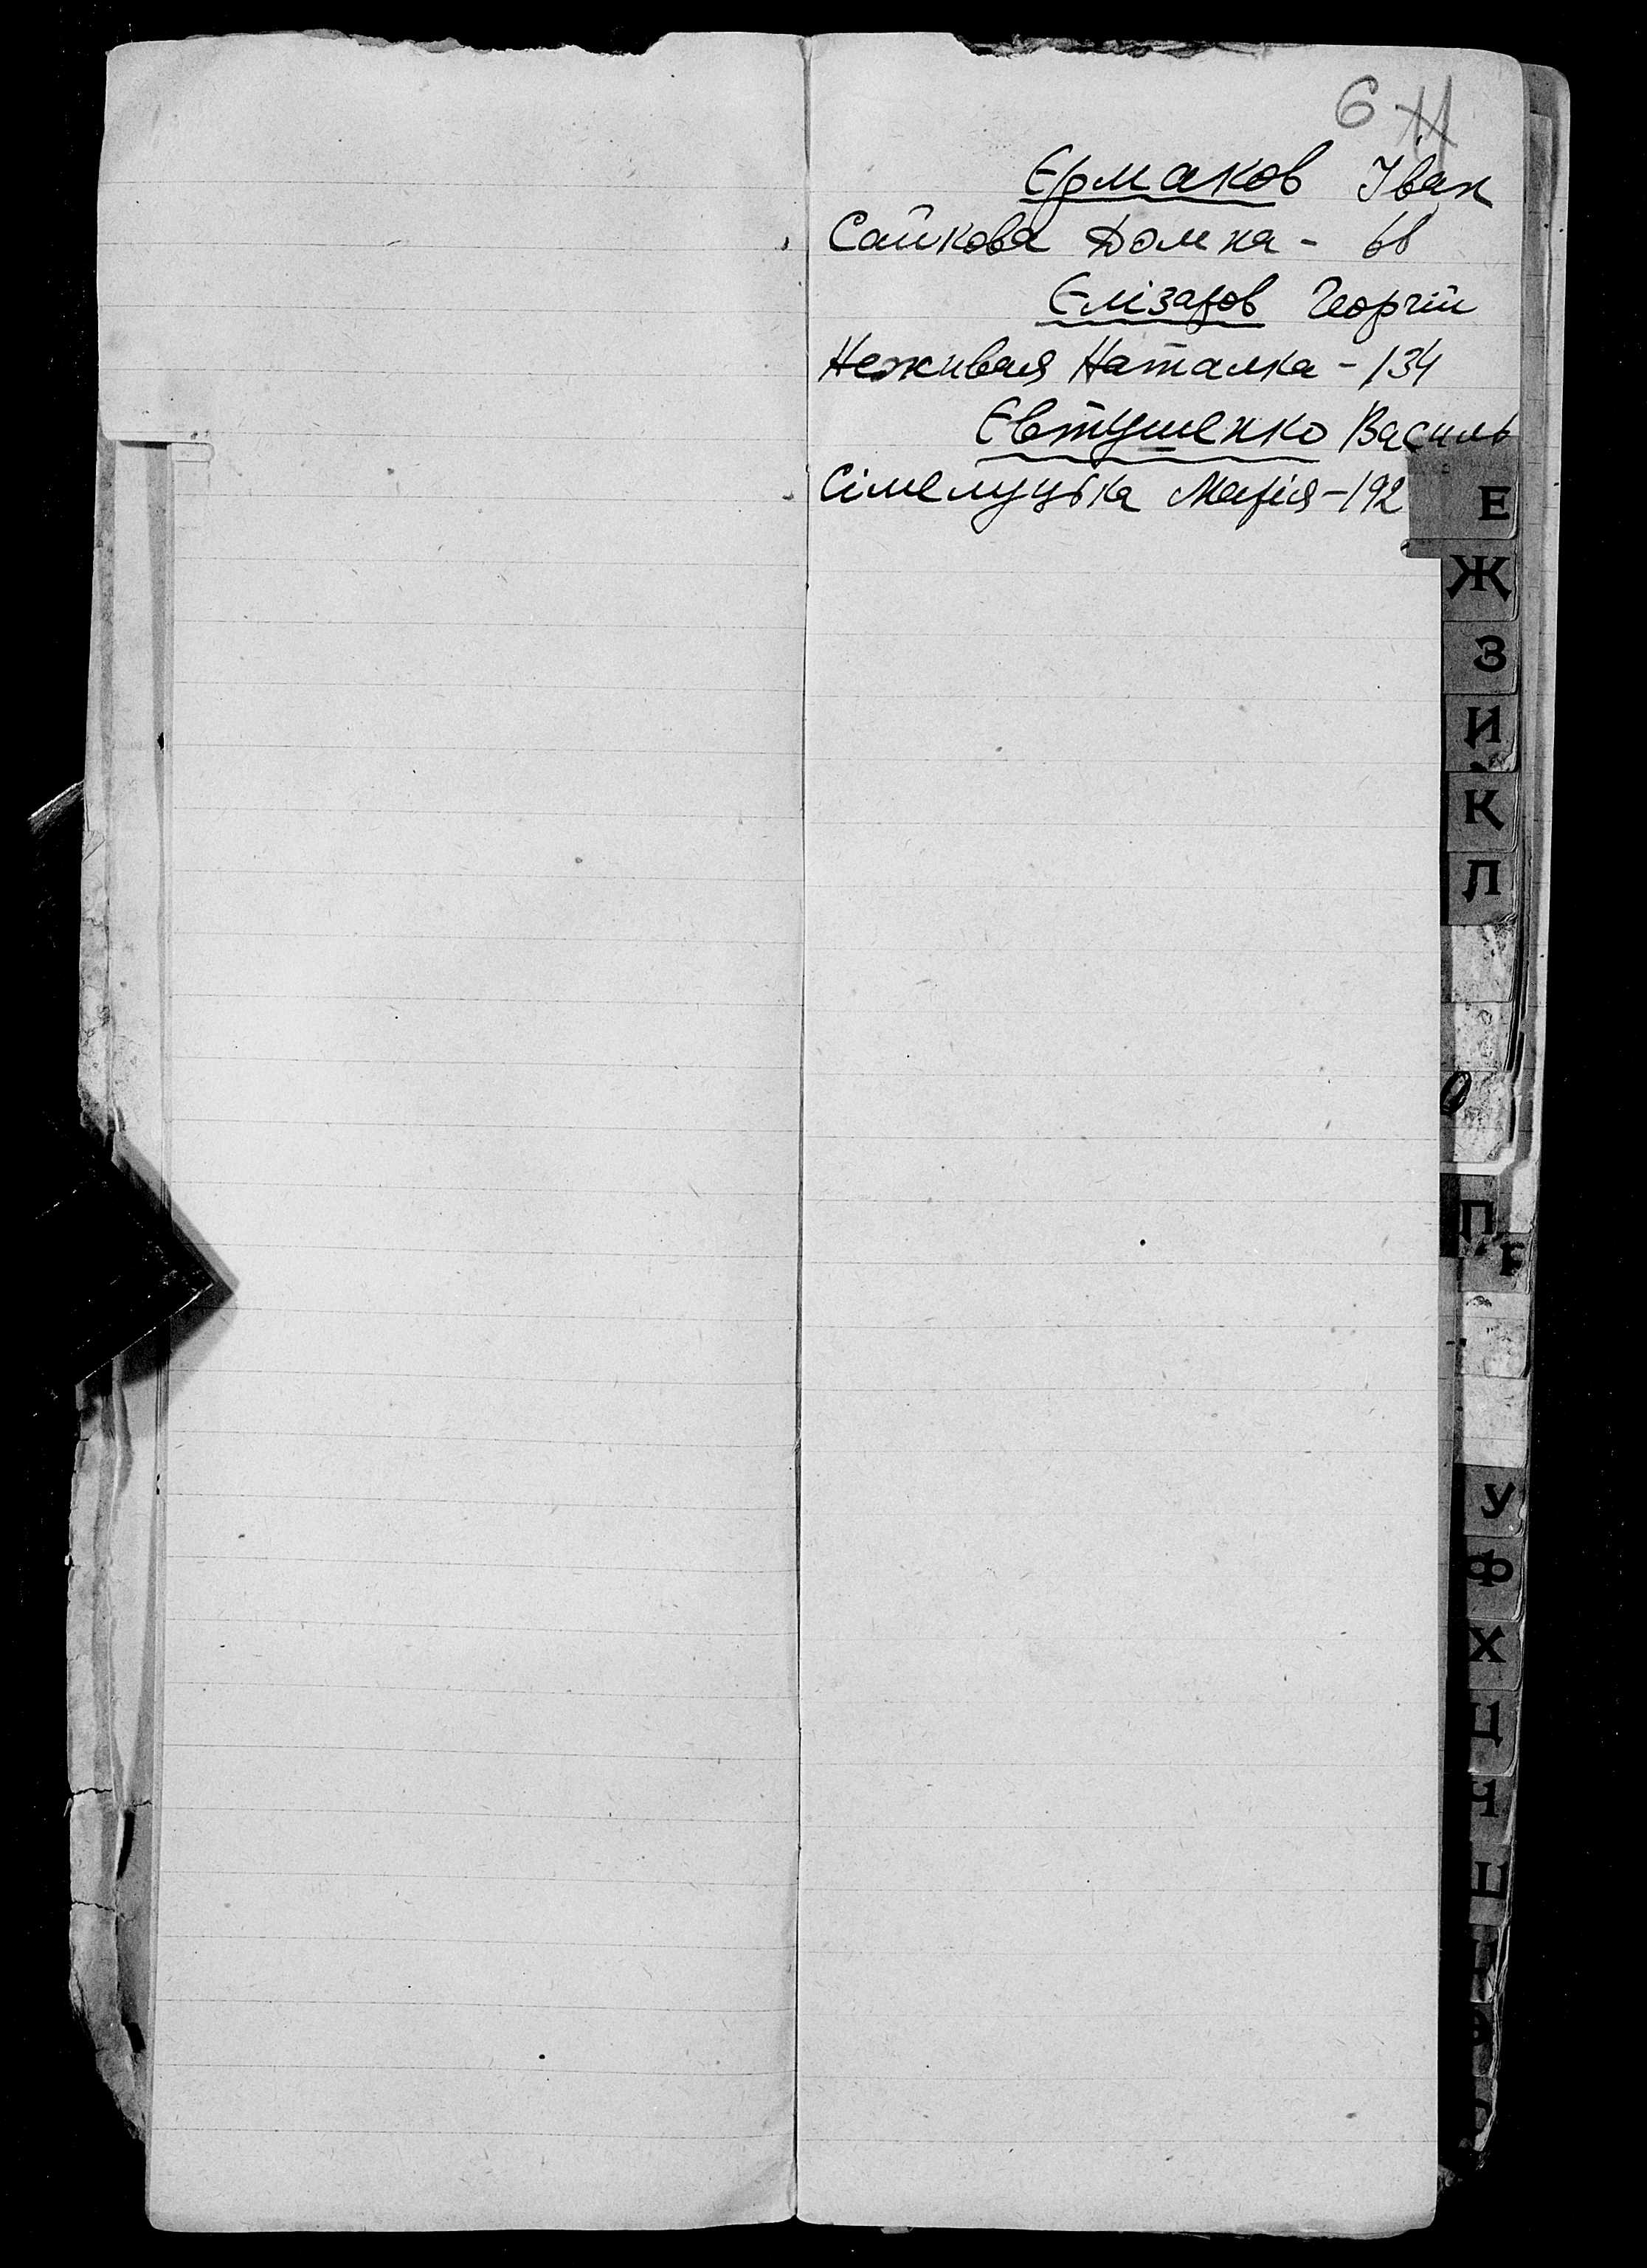 6 11
Єрмаков Іван
Сайкова Домка - 68
Єлізаров Георгій
Неживая Наталка - 134
Євтушенко Василь
Сімелуцька Марія - 192
Е
Ж
З
И
К
Л
О
П
У
Ф
Х